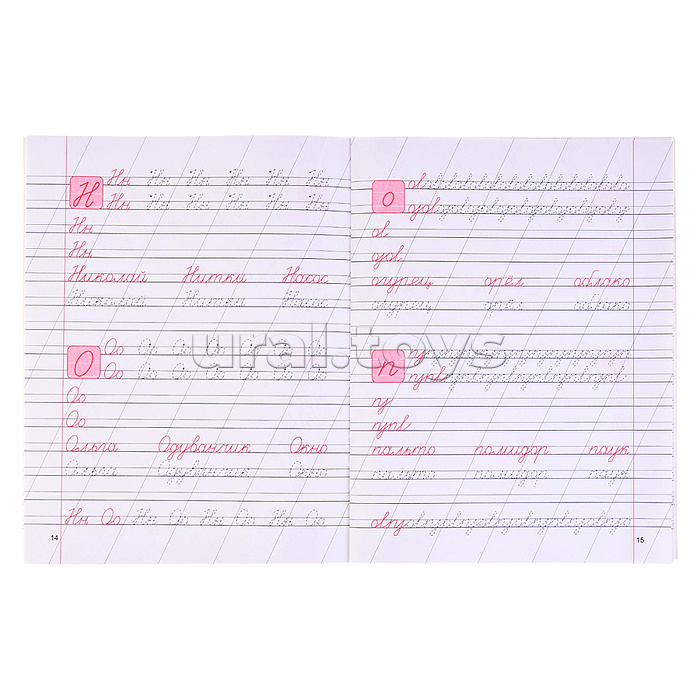 Н Нн Нн Нн Нн Нн Нн
Нн Нн Нн Нн Нн Нн
Нн
Нн
Николай Нитки Насос
Николай Нитки Насос
О Оо Оо Оо Оо Оо Оо Оо
Оо Оо Оо Оо Оо Оо Оо
Оо
Оо
Ольга Одуванчик Окно
Ольга Одуванчик Окно
Нн Оо Нн Оо Нн Оо Нн Оо
14
о
огурец орёл облако
огурец орёл облако
п
пальто помидор паук
пальто помидор паук
15
ural.toys